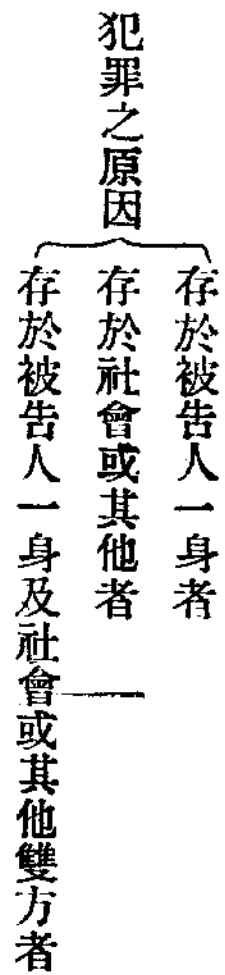 犯罪之原因
存於被告人一身者
存於社會或其他者
存於被告人一身及社會或其他雙方者